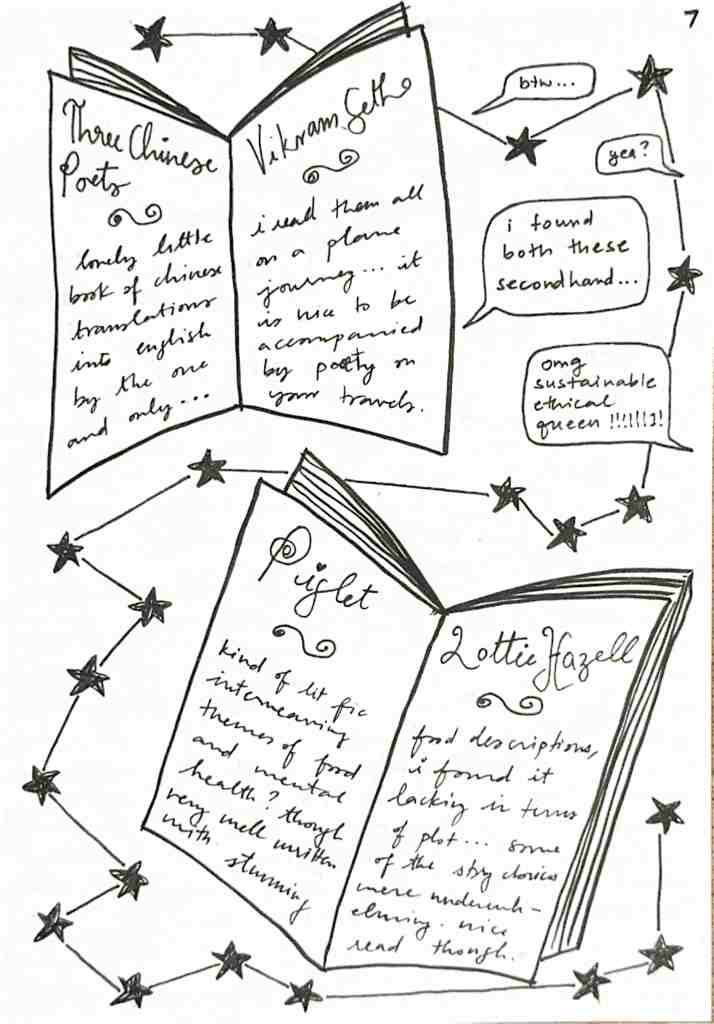 7
Three Chinese
Poets
lovely little
book of chinese
translations
into english
by the one
and only...
Vikram Seth
i read them all
on a plane
journey... it
is nice to be
accompanied
by poetry on
your travels.
btw...
yea?
i found
both these
secondhand...
omg
sustainable
ethical
queen !!!!!!1!
Piglet
kind of lit fic
interweaving
themes of food
and mental
health? though
very well written
with stunning
Lottie Hazell
food descriptions,
i found it
lacking in terms
of plot... some
of the story choices
were underwh-
elming. nice
read though.